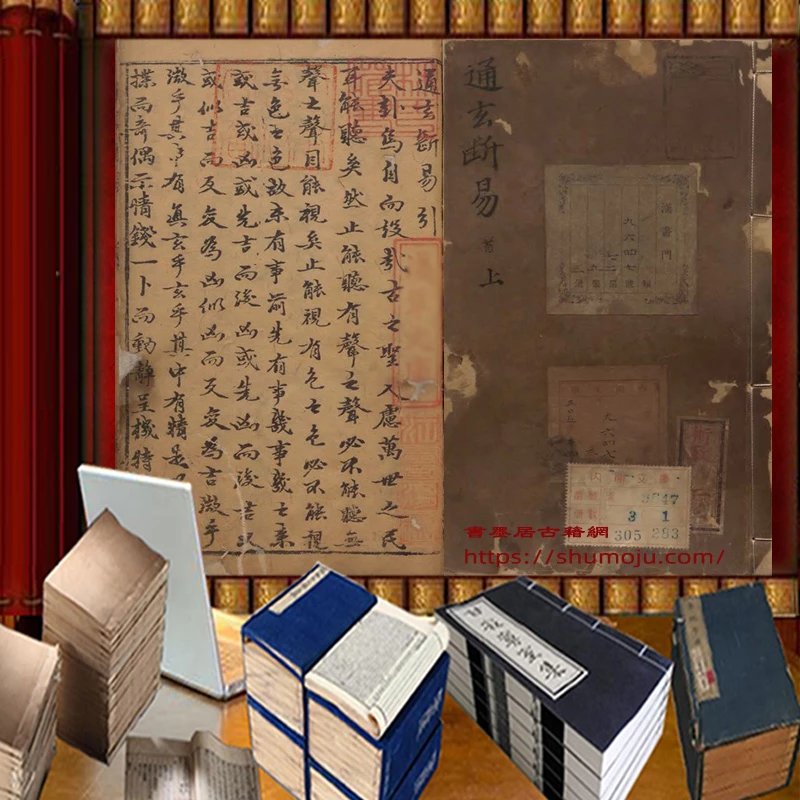 通玄断易引
夫卦烏自而設哉古之聖人慮萬世之民
耳能聽矣然止能聽有聲之聲必不能聽無
聲之聲目能視矣止能視有色之色必不能視
無色之色故未有事前先有事幾事幾之來
或吉或凶或先吉而後凶或先凶而後吉又
或似吉而反變為凶似凶而反變為吉微乎
微乎其中有真玄乎玄乎其中有精是
揲而奇偶示情錢一卜而動靜呈機特
通玄断易
上
漢書門
九六四七
9647
3 1
305 293
書墨居古籍網
https://shumoju.com/